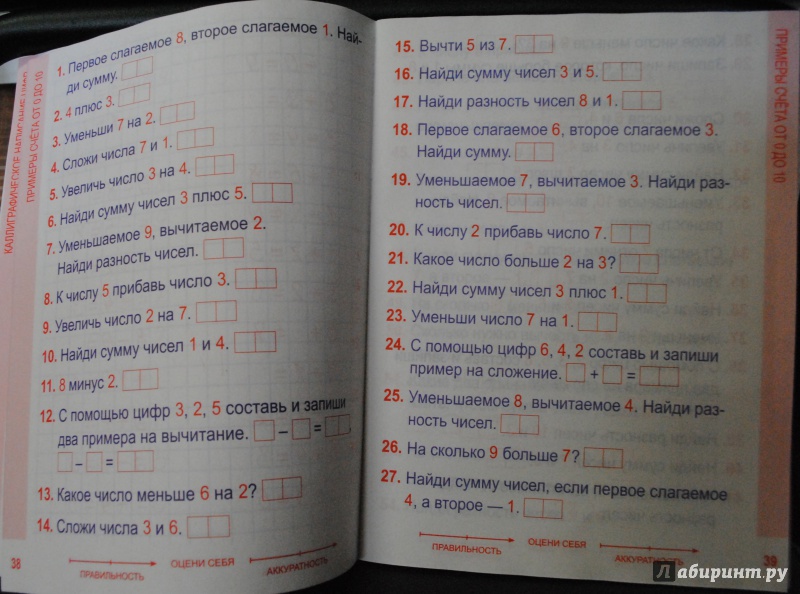 КАЛЛИГРАФИЧЕСКОЕ НАПИСАНИЕ
ПРИМЕРЫ СЧЁТА ОТ 0 ДО 10
1. Первое слагаемое 8, второе слагаемое 1. Най-
ди сумму.
2. 4 плюс 3.
3. Уменьши 7 на 2.
4. Сложи числа 7 и 1.
5. Увеличь число 3 на 4.
6. Найди сумму чисел 3 плюс 5.
7. Уменьшаемое 9, вычитаемое 2.
Найди разность чисел.
8. К числу 5 прибавь число 3.
9. Увеличь число 2 на 7.
10. Найди сумму чисел 1 и 4.
11. 8 минус 2.
12. С помощью цифр 3, 2, 5 составь и запиши
два примера на вычитание. – =
– =
13. Какое число меньше 6 на 2?
14. Сложи числа 3 и 6.
38
ПРАВИЛЬНОСТЬ ОЦЕНИ СЕБЯ АККУРАТНОСТЬ
15. Вычти 5 из 7.
16. Найди сумму чисел 3 и 5.
17. Найди разность чисел 8 и 1.
18. Первое слагаемое 6, второе слагаемое 3.
Найди сумму.
19. Уменьшаемое 7, вычитаемое 3. Найди раз-
ность чисел.
20. К числу 2 прибавь число 7.
21. Какое число больше 2 на 3?
22. Найди сумму чисел 3 плюс 1.
23. Уменьши число 7 на 1.
24. С помощью цифр 6, 4, 2 составь и запиши
пример на сложение. + =
25. Уменьшаемое 8, вычитаемое 4. Найди раз-
ность чисел.
26. На сколько 9 больше 7?
27. Найди сумму чисел, если первое слагаемое
4, а второе — 1.
ПРАВИЛЬНОСТЬ ОЦЕНИ СЕБЯ АККУРАТНОСТЬ
39
ПРИМЕРЫ СЧЁТА ОТ 0 ДО 10
Лабиринт.ру